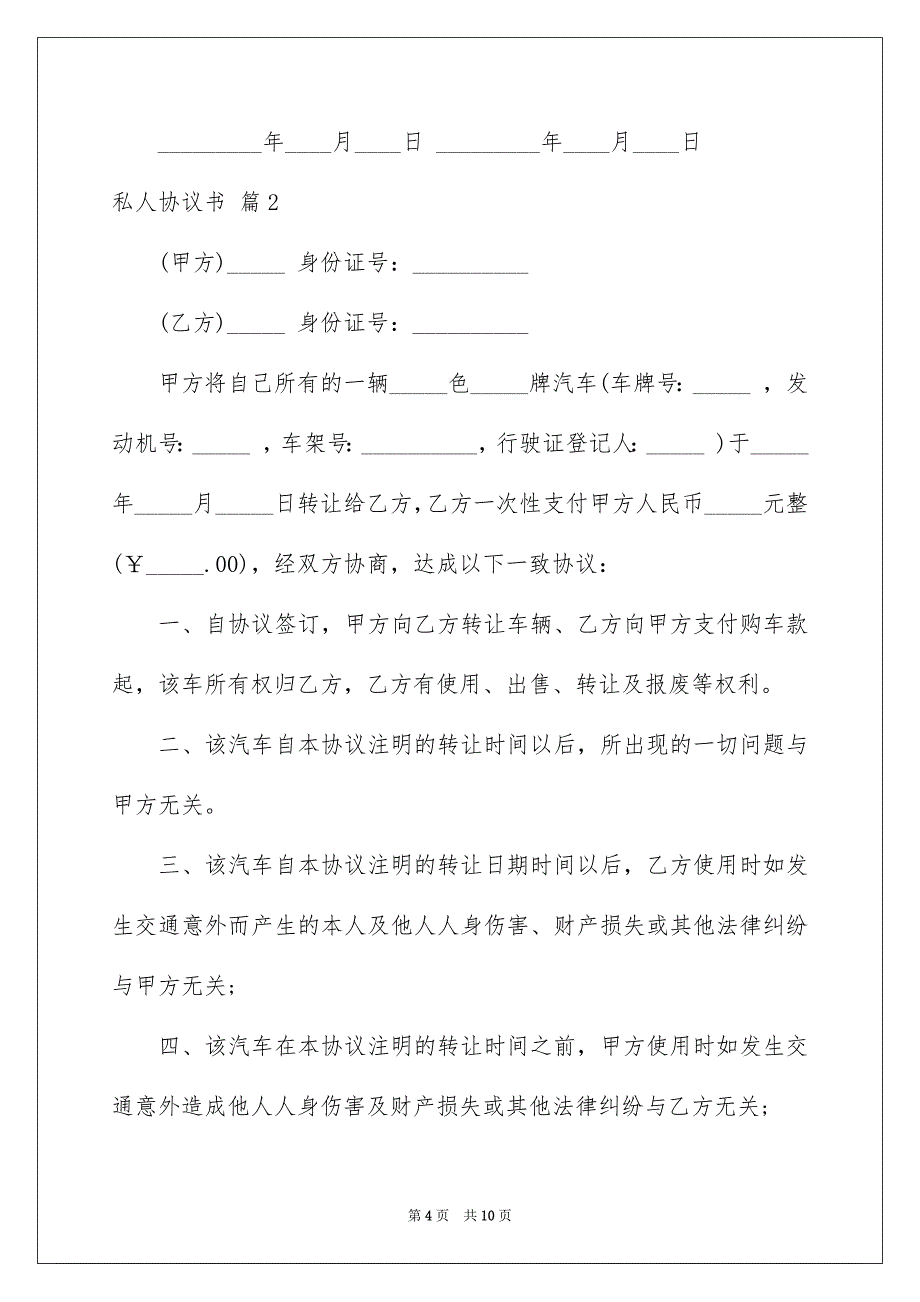 _________年____月____日 _________年____月____日
私人协议书 篇2
(甲方)_____ 身份证号：__________
(乙方)_____ 身份证号：__________
甲方将自己所有的一辆_____色_____牌汽车(车牌号：_____ ，发
动机号：_____ ，车架号：__________，行驶证登记人：_____ )于_____
年_____月_____日转让给乙方，乙方一次性支付甲方人民币_____元整
(￥_____.00)，经双方协商，达成以下一致协议：
一、自协议签订，甲方向乙方转让车辆、乙方向甲方支付购车款
起，该车所有权归乙方，乙方有使用、出售、转让及报废等权利。
二、该汽车自本协议注明的转让时间以后，所出现的一切问题与
甲方无关。
三、该汽车自本协议注明的转让日期时间以后，乙方使用时如发
生交通意外而产生的本人及他人人身伤害、财产损失或其他法律纠纷
与甲方无关;
四、该汽车在本协议注明的转让时间之前，甲方使用时如发生交
通意外造成他人人身伤害及财产损失或其他法律纠纷与乙方无关;
第 4 页 共 10 页